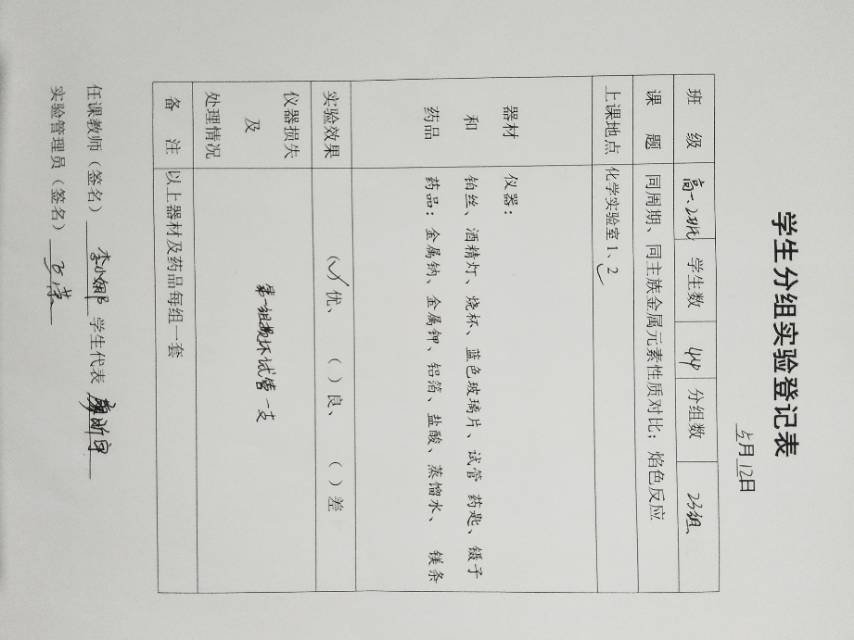 学生分组实验登记表
5月12日
班 级 高一、2班 学生数 44 分组数 23组
课 题 同周期、同主族金属元素性质对比；焰色反应
上课地点 化学实验室1、2
器材 仪器：
和 铂丝、酒精灯、烧杯、蓝色玻璃片、试管 药匙、镊子
药品 药品：金属钠、金属钾、铝箔、盐酸、蒸馏水、 镁条
实验效果 (✓)优、 ( )良、 ( )差
仪器损失
及 第一组损坏试管一支
处理情况
备 注 以上器材及药品每组一套
任课教师（签名） 李小娜 学生代表
实验管理员（签名）